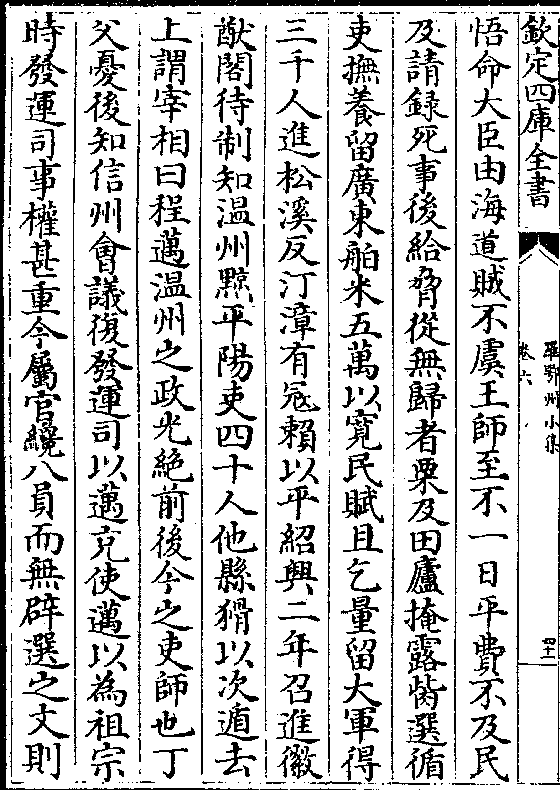 欽定四庫全書
羅鄂州小集
卷六
四十一
悟命大臣由海道賊不虞王師至不一日平費不及民
及請録死事後給脅從無歸者粟及田廬掩露胔選循
吏撫養留廣東舶米五萬以寛民賦且乞量留大軍得
三千人進松溪反汀漳有冦賴以平紹興二年召進徽
猷閣待制知温州黥平陽吏四十人他縣猾以次遁去
上謂宰相曰程邁温州之政光絶前後今之吏師也丁
父憂後知信州會議復發運司以邁充使邁以為祖宗
時發運司事權甚重今屬官纔八員而無辟選之文則